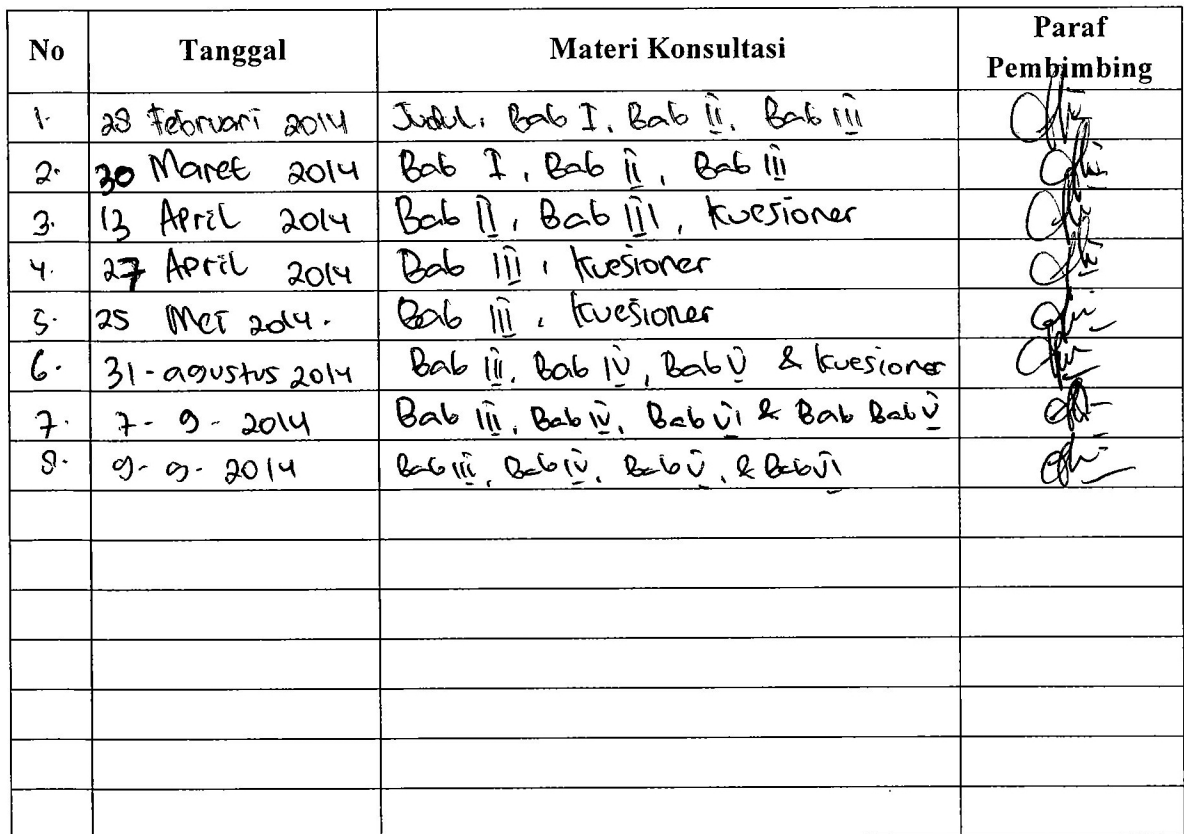 No Tanggal Materi Konsultasi Paraf Pembimbing
1. 28 Februari 2014 Judul, Bab I, Bab II, Bab III
2. 30 Maret 2014 Bab I, Bab II, Bab III
3. 13 April 2014 Bab II, Bab III, kuesioner
4. 27 April 2014 Bab III, kuesioner
5. 25 Mei 2014. Bab III, kuesioner
6. 31-agustus 2014 Bab III, Bab IV, Bab V & kuesioner
7. 7-9-2014 Bab III, Bab IV, Bab VI & Bab Bab V
8. 9-9-2014 Bab III, Bab IV, Bab V, & Bab VI